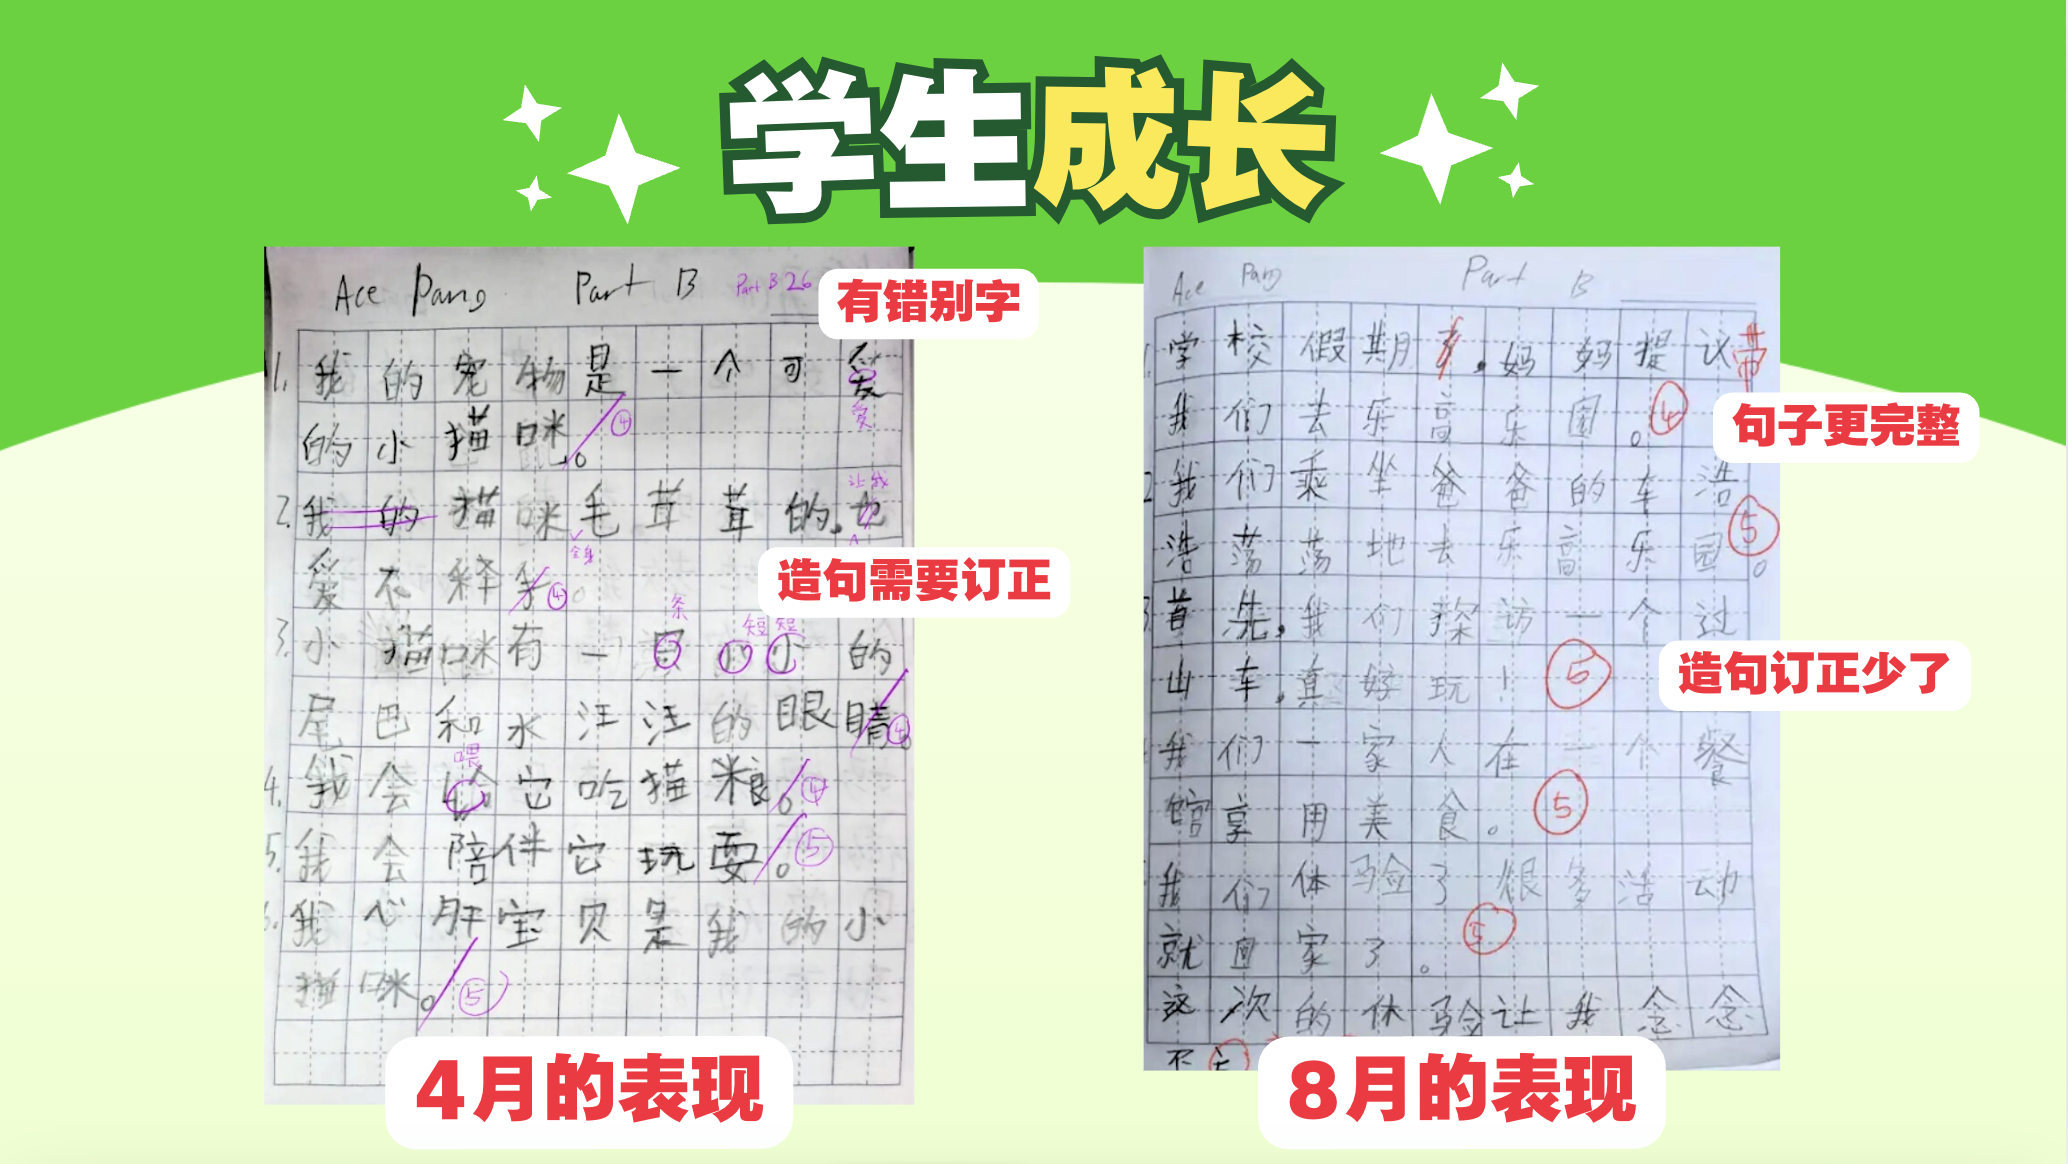 学生成长
Ace Pang Part B Part B 26
有错别字
1. 我的宠物是一个可爱
爱
的小猫咪。④
让我
2. 我的猫咪毛茸茸的。也
全身
爱不释手④。
造句需要订正
条 短短
3. 小猫咪有一只小小的
尾巴和水汪汪的眼睛④。
喂
4. 我会给它吃猫粮。④
5. 我会陪伴它玩耍。⑤
6. 我心肝宝贝是我的小
猫咪。⑤
4月的表现
Ace Pang Part B
1. 学校假期了,妈妈提议带
我们去乐高乐园。④
句子更完整
2 我们乘坐爸爸的车浩
浩荡荡地去乐高乐园。⑤
3. 首先,我们探访一个过
山车,真好玩!⑤
造句订正少了
我们一家人在一个餐
馆享用美食。⑤
我们体验了很多活动
就回家了。⑤
这次的体验让我念念
不
8月的表现